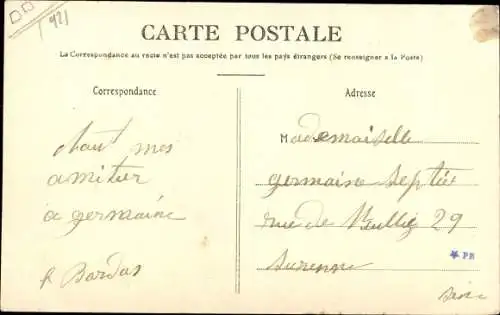 1921
CARTE POSTALE
La Correspondance au recto n'est pas acceptée par tous les pays étrangers (Se renseigner a la Poste)
Correspondance
Adresse
mes
amitier
a germaine
Bardas
Mademoiselle
germaine Septier
rue de 29
Surenne
PB